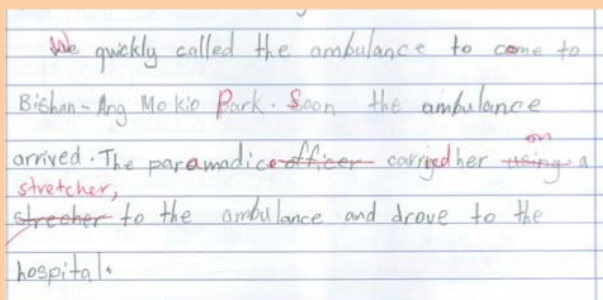 We quickly called the ambulance to come to
Bishan-Ang Mo Kio Park. Soon the ambulance
on
arrived. The paramadic officer carried her using a
stretcher,
strecher to the ambulance and drove to the
hospital.